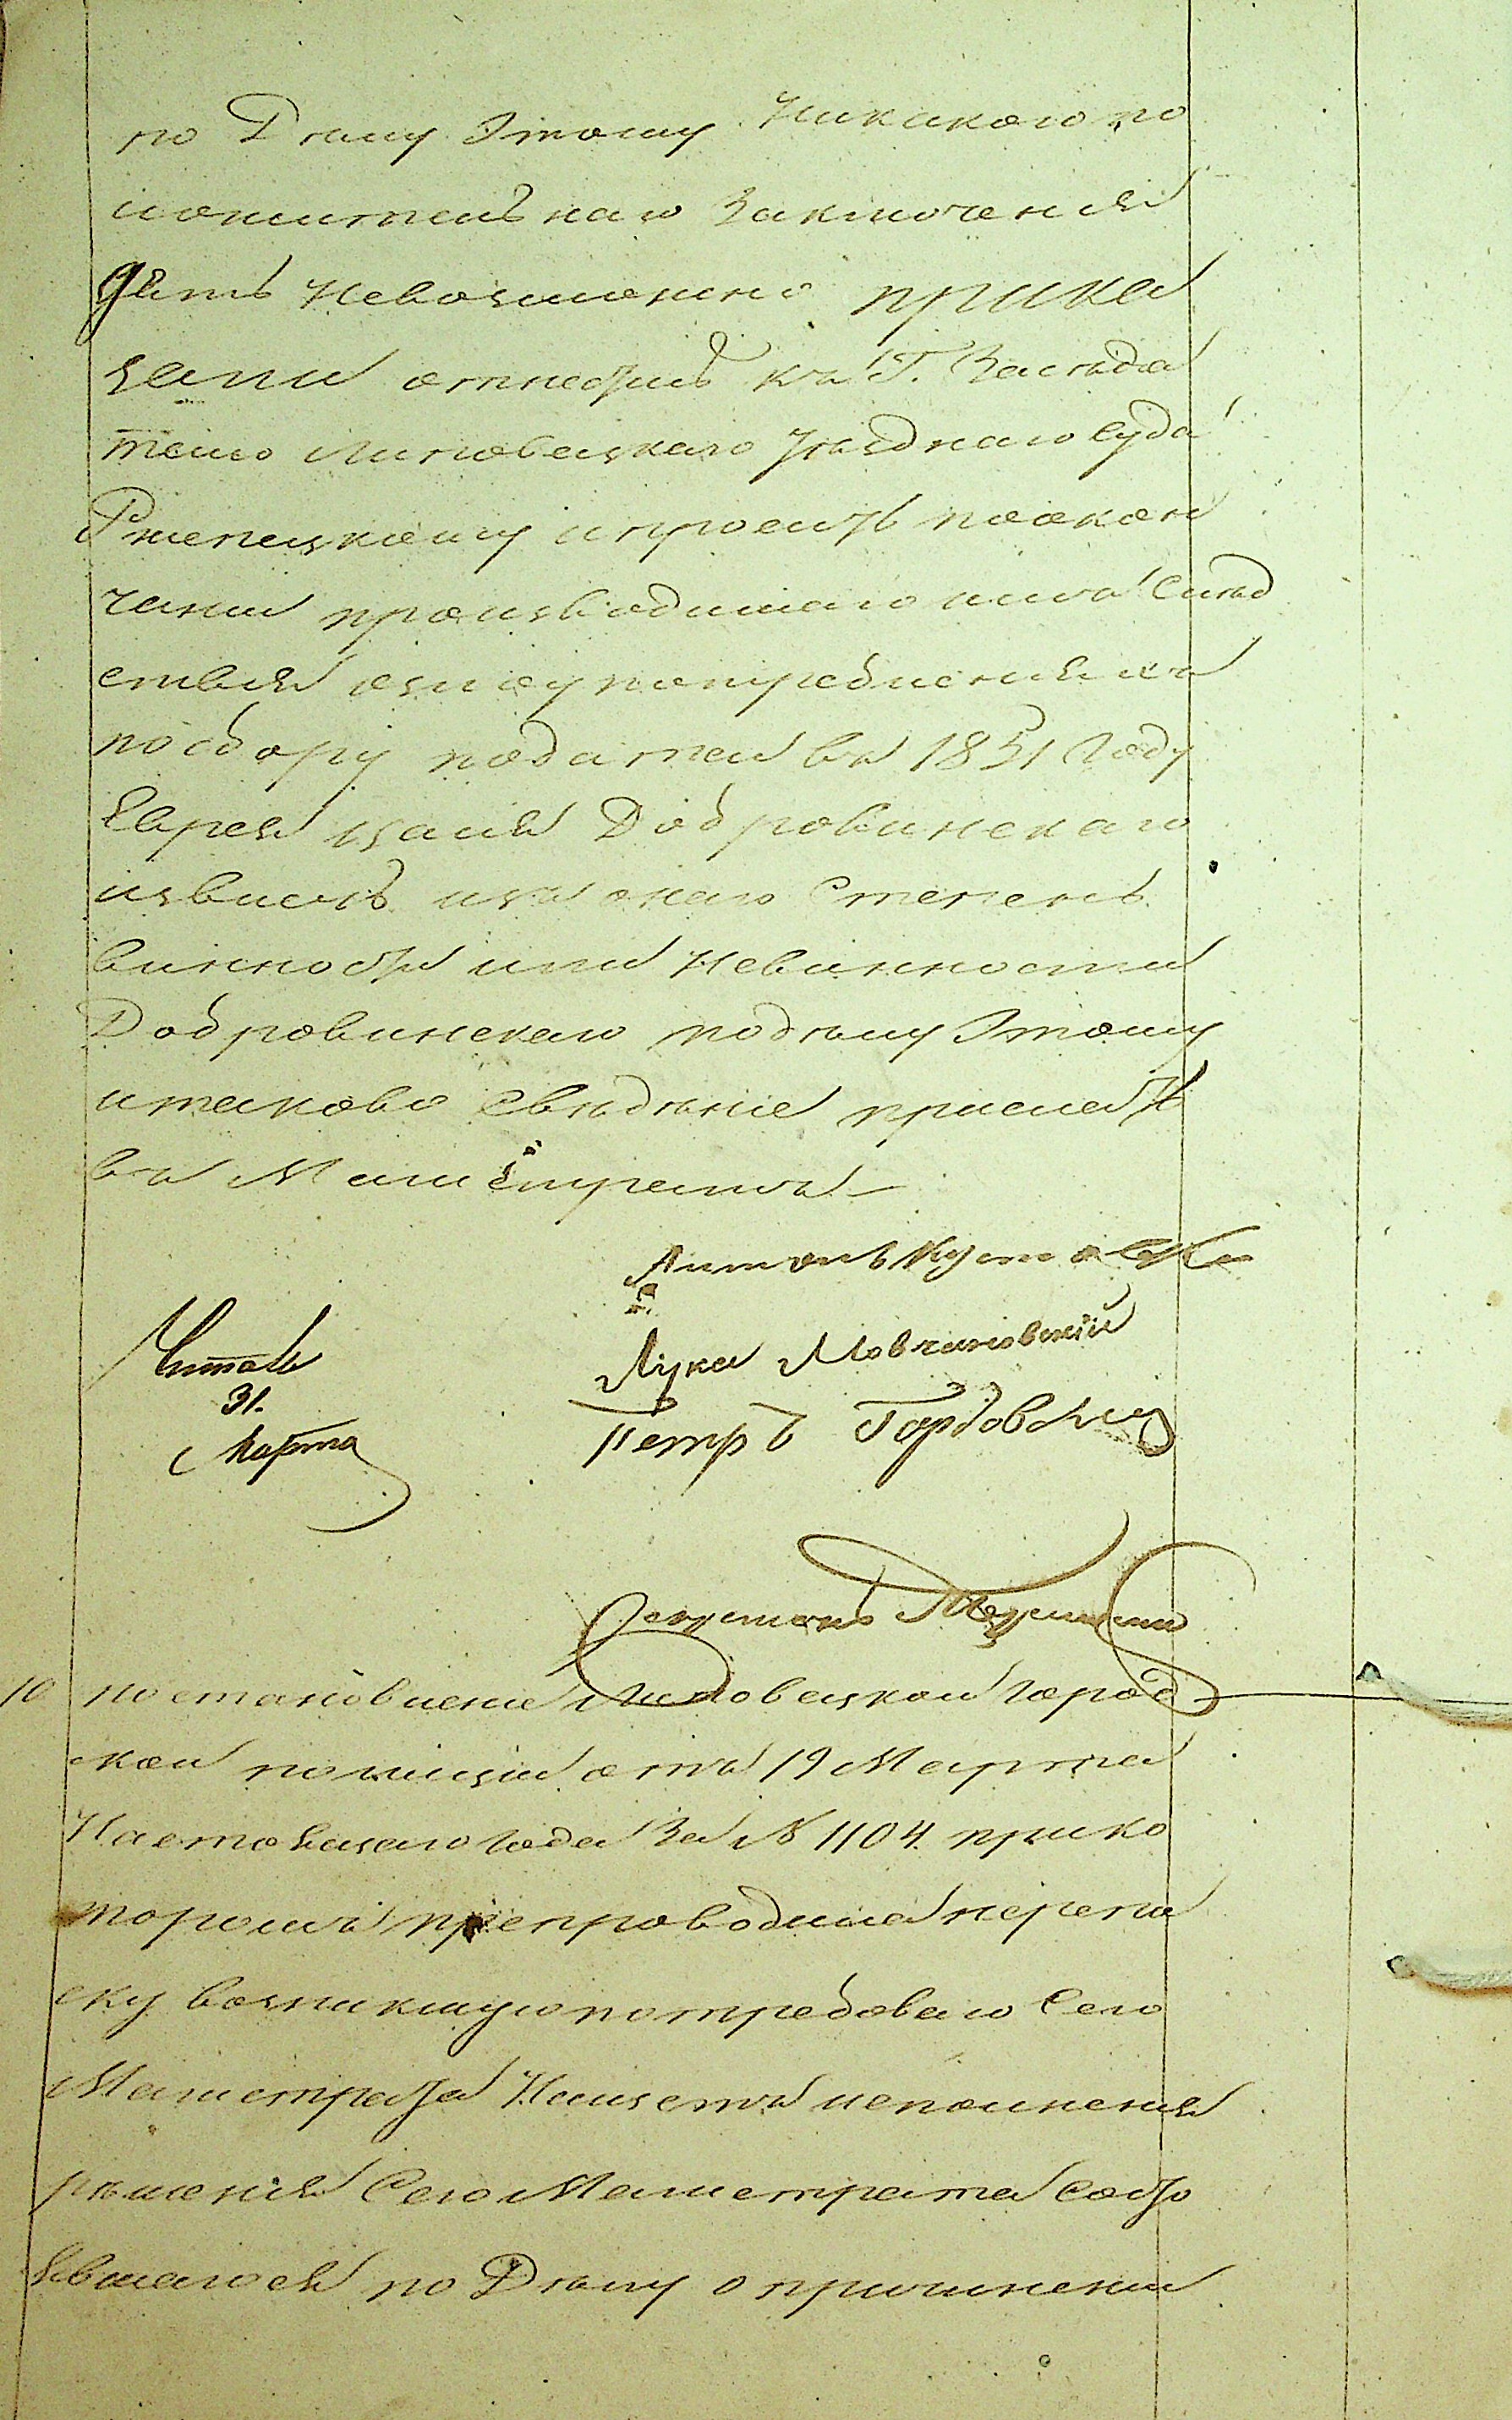 по Дѣлу Этому Никакого по
ложительнаго Заключенія
дѣлать Невозможно прика
зали отнестись къ Г. Засѣда
телю Липовецкаго Уѣзднаго Суда
Ржепецкому и просить по окон
чаніи производимаго имъ Слѣд
ствія о злоупотребленіяхъ
по сбору податей въ 1851 Году
Еврея Добровинскаго
извлечь изъ онаго Степень
винности или Невинности
Добровинскаго по дѣлу Этому
и таково Свѣдѣніе прислать
въ Магистратъ
Антонъ
Лука Мовчановскій
Петръ
Читалъ
31.
Марта
Секретарь
10 постановленіе Липовецкой Город
ской полиціи отъ 19 Марта
Настоящаго Года За № 1104 при ко
торомъ препроводила перепи
ску возникшую по требованію Сего
Магистрата Насчетъ исполненія
рѣшенія Сего Магистрата Состо
явшагося по Дѣлу о причиненіи